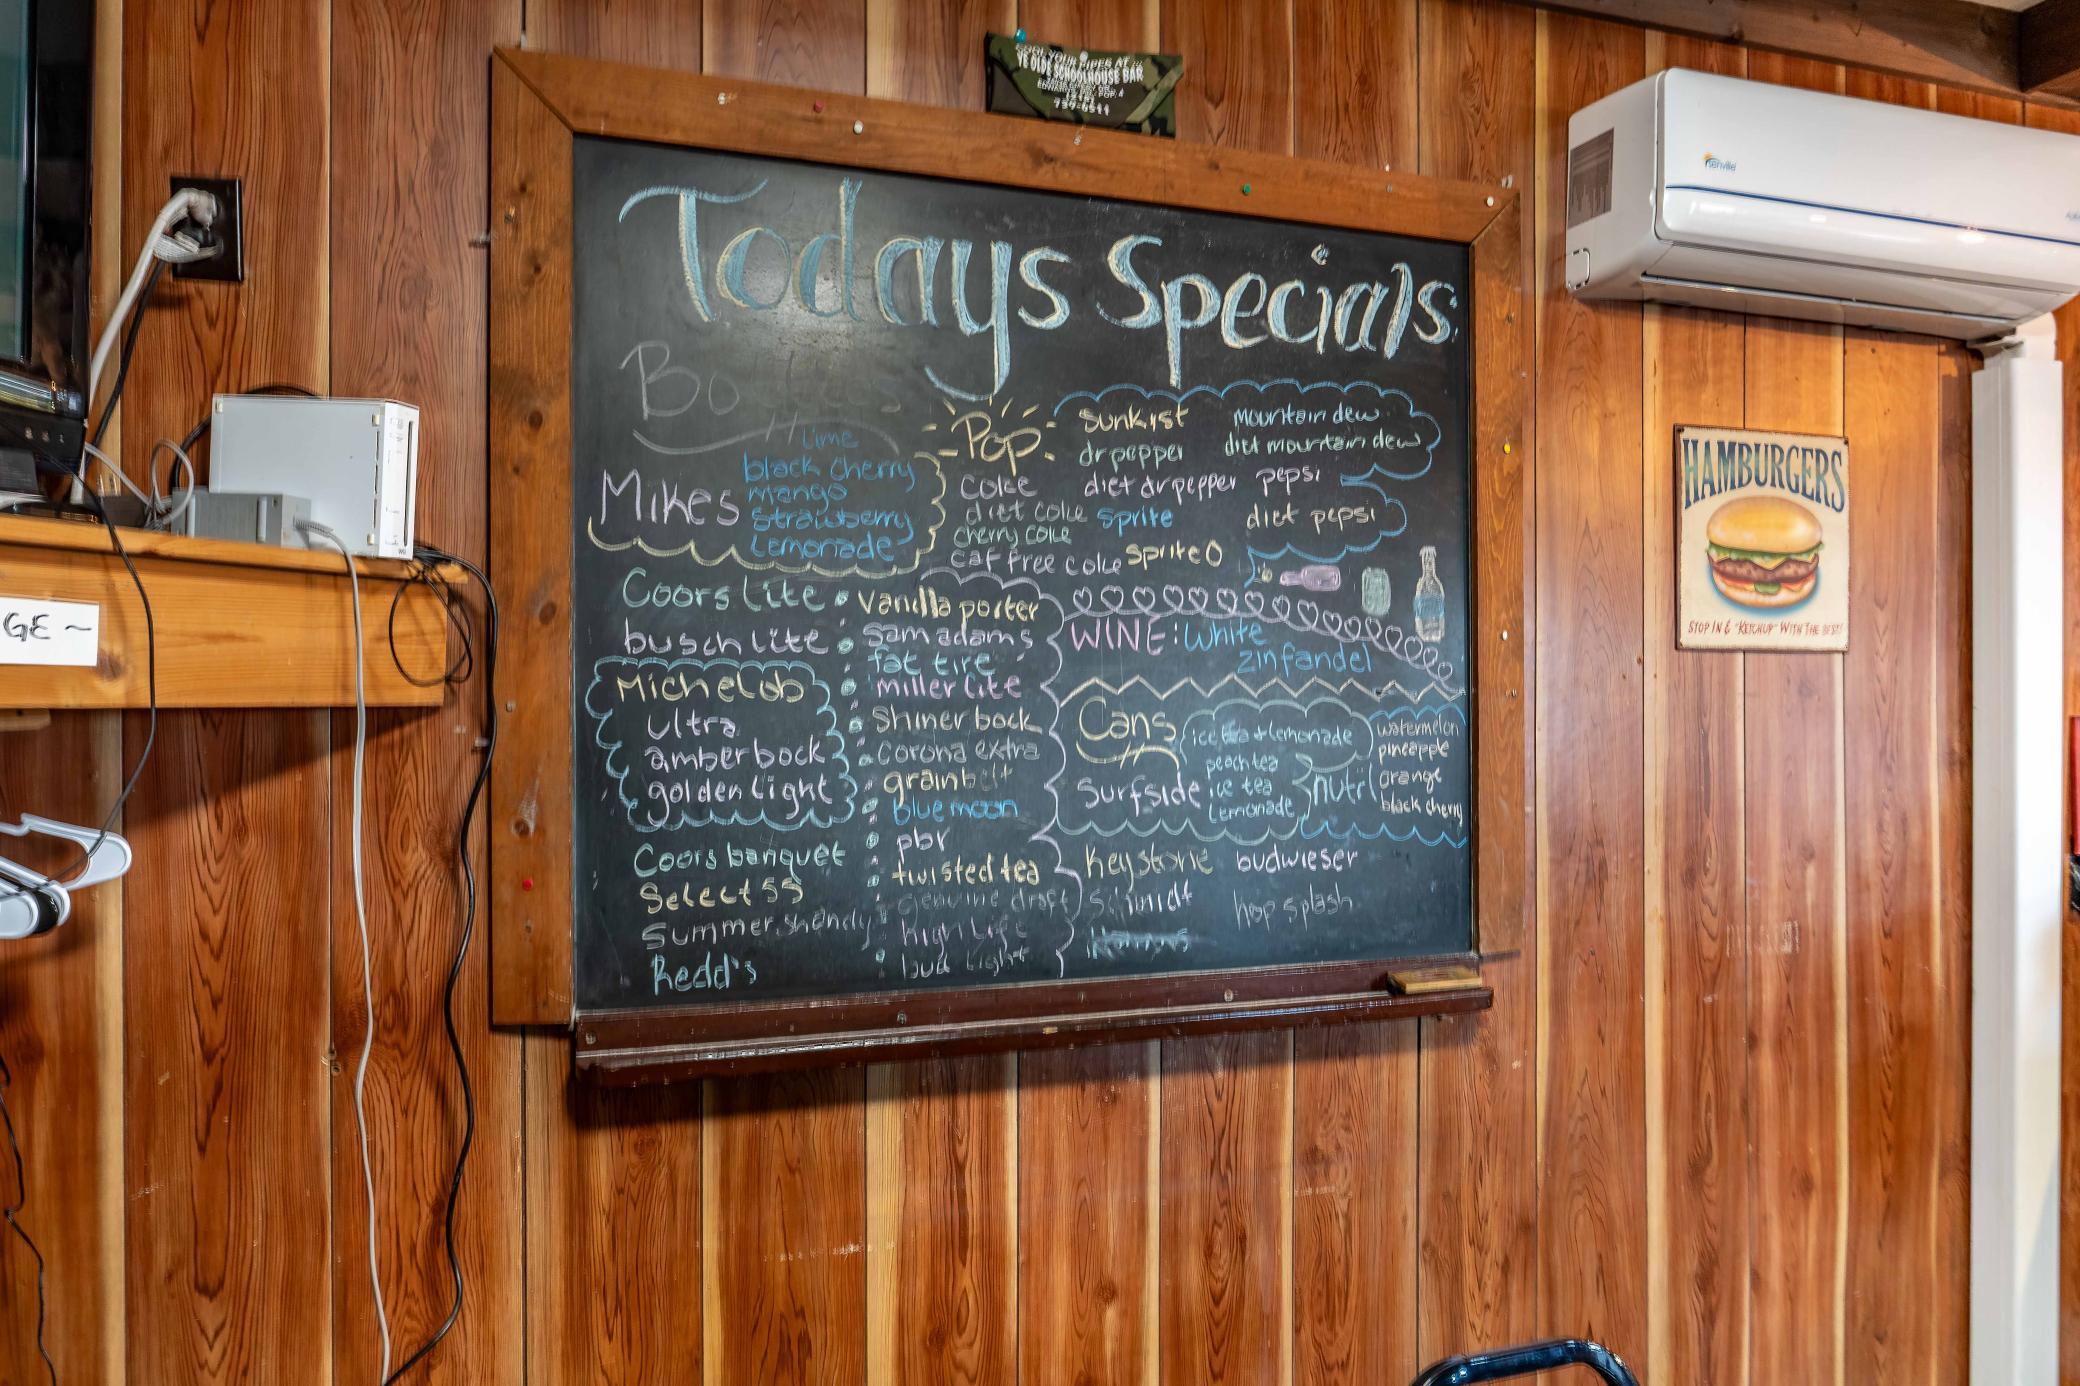 COOL YOUR PIPES AT...
YE OLDE SCHOOLHOUSE BAR
Todays Specials
Bottles
Mikes
lime
black cherry
mango
strawberry
Lemonade
Pop
coke
diet coke
cherry coke
caf free coke
sunkist
dr pepper
diet dr pepper
sprite
sprite 0
mountain dew
diet mountain dew
pepsi
diet pepsi
Coors Lite
busch Lite
Michelob
Ultra
amber bock
golden Light
Coors banquet
Select 55
Summer shandy
Redd's
vanilla porter
Sam adams
fat tire
miller Lite
Shiner bock
corona extra
grain belt
blue moon
pbr
twisted tea
genuine draft
high Life
bud Light
WINE: White
zinfandel
Cans
Surfside
ice tea + lemonade
peach tea
ice tea
Lemonade
nutrl
watermelon
pineapple
orange
black cherry
Keystone
budwieser
hop splash
senville
HAMBURGERS
STOP IN & "KETCHUP" WITH THE BEST!
GE ~
Wii